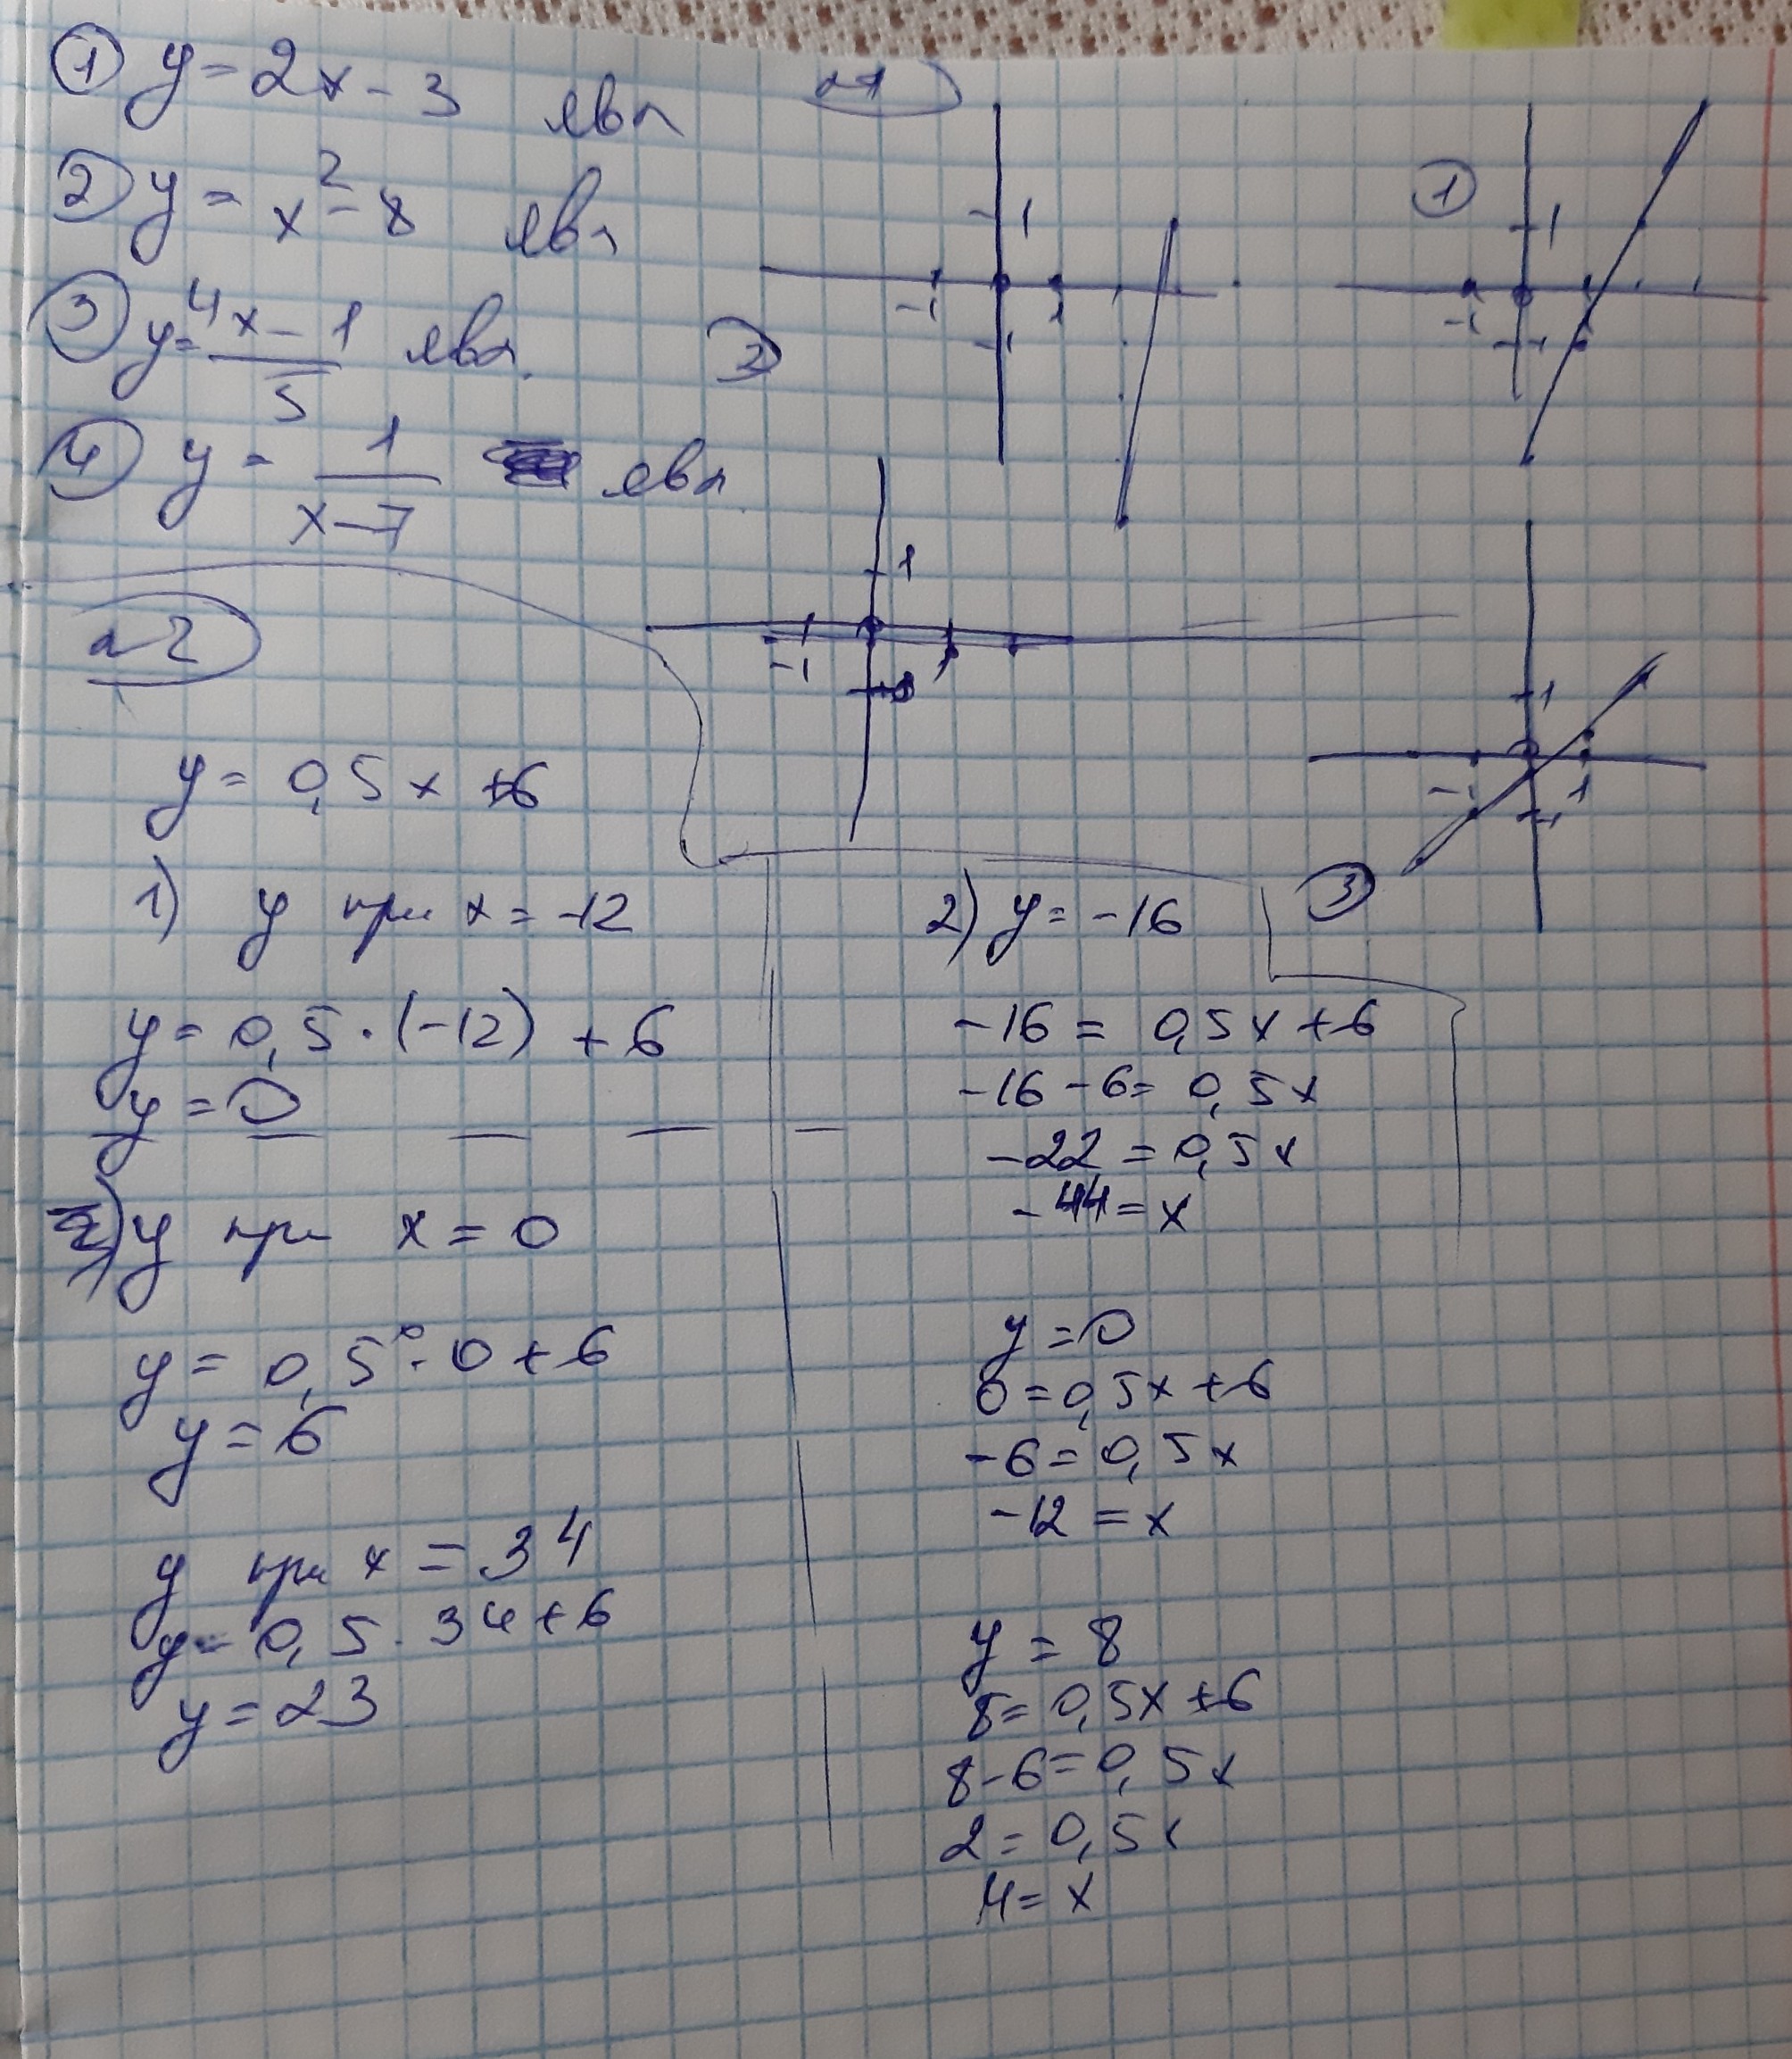 ① y = 2x - 3 явл
② y = x² - 8 явл
③ y = (4x - 1)/5 явл.
④ y = 1/(x - 7) явл
1
-1
1
-1
②
①
1
-1
-1
1
-1
1
1
-1
1
-1
③
y = 0,5x + 6
1) y при x = -12
y = 0,5 · (-12) + 6
y = 0
y при x = 0
y = 0,5 · 0 + 6
y = 6
y при x = 34
y = 0,5 · 34 + 6
y = 23
2) y = -16
-16 = 0,5x + 6
-16 - 6 = 0,5x
-22 = 0,5x
-44 = x
y = 0
0 = 0,5x + 6
-6 = 0,5x
-12 = x
y = 8
8 = 0,5x + 6
8 - 6 = 0,5x
2 = 0,5x
4 = x